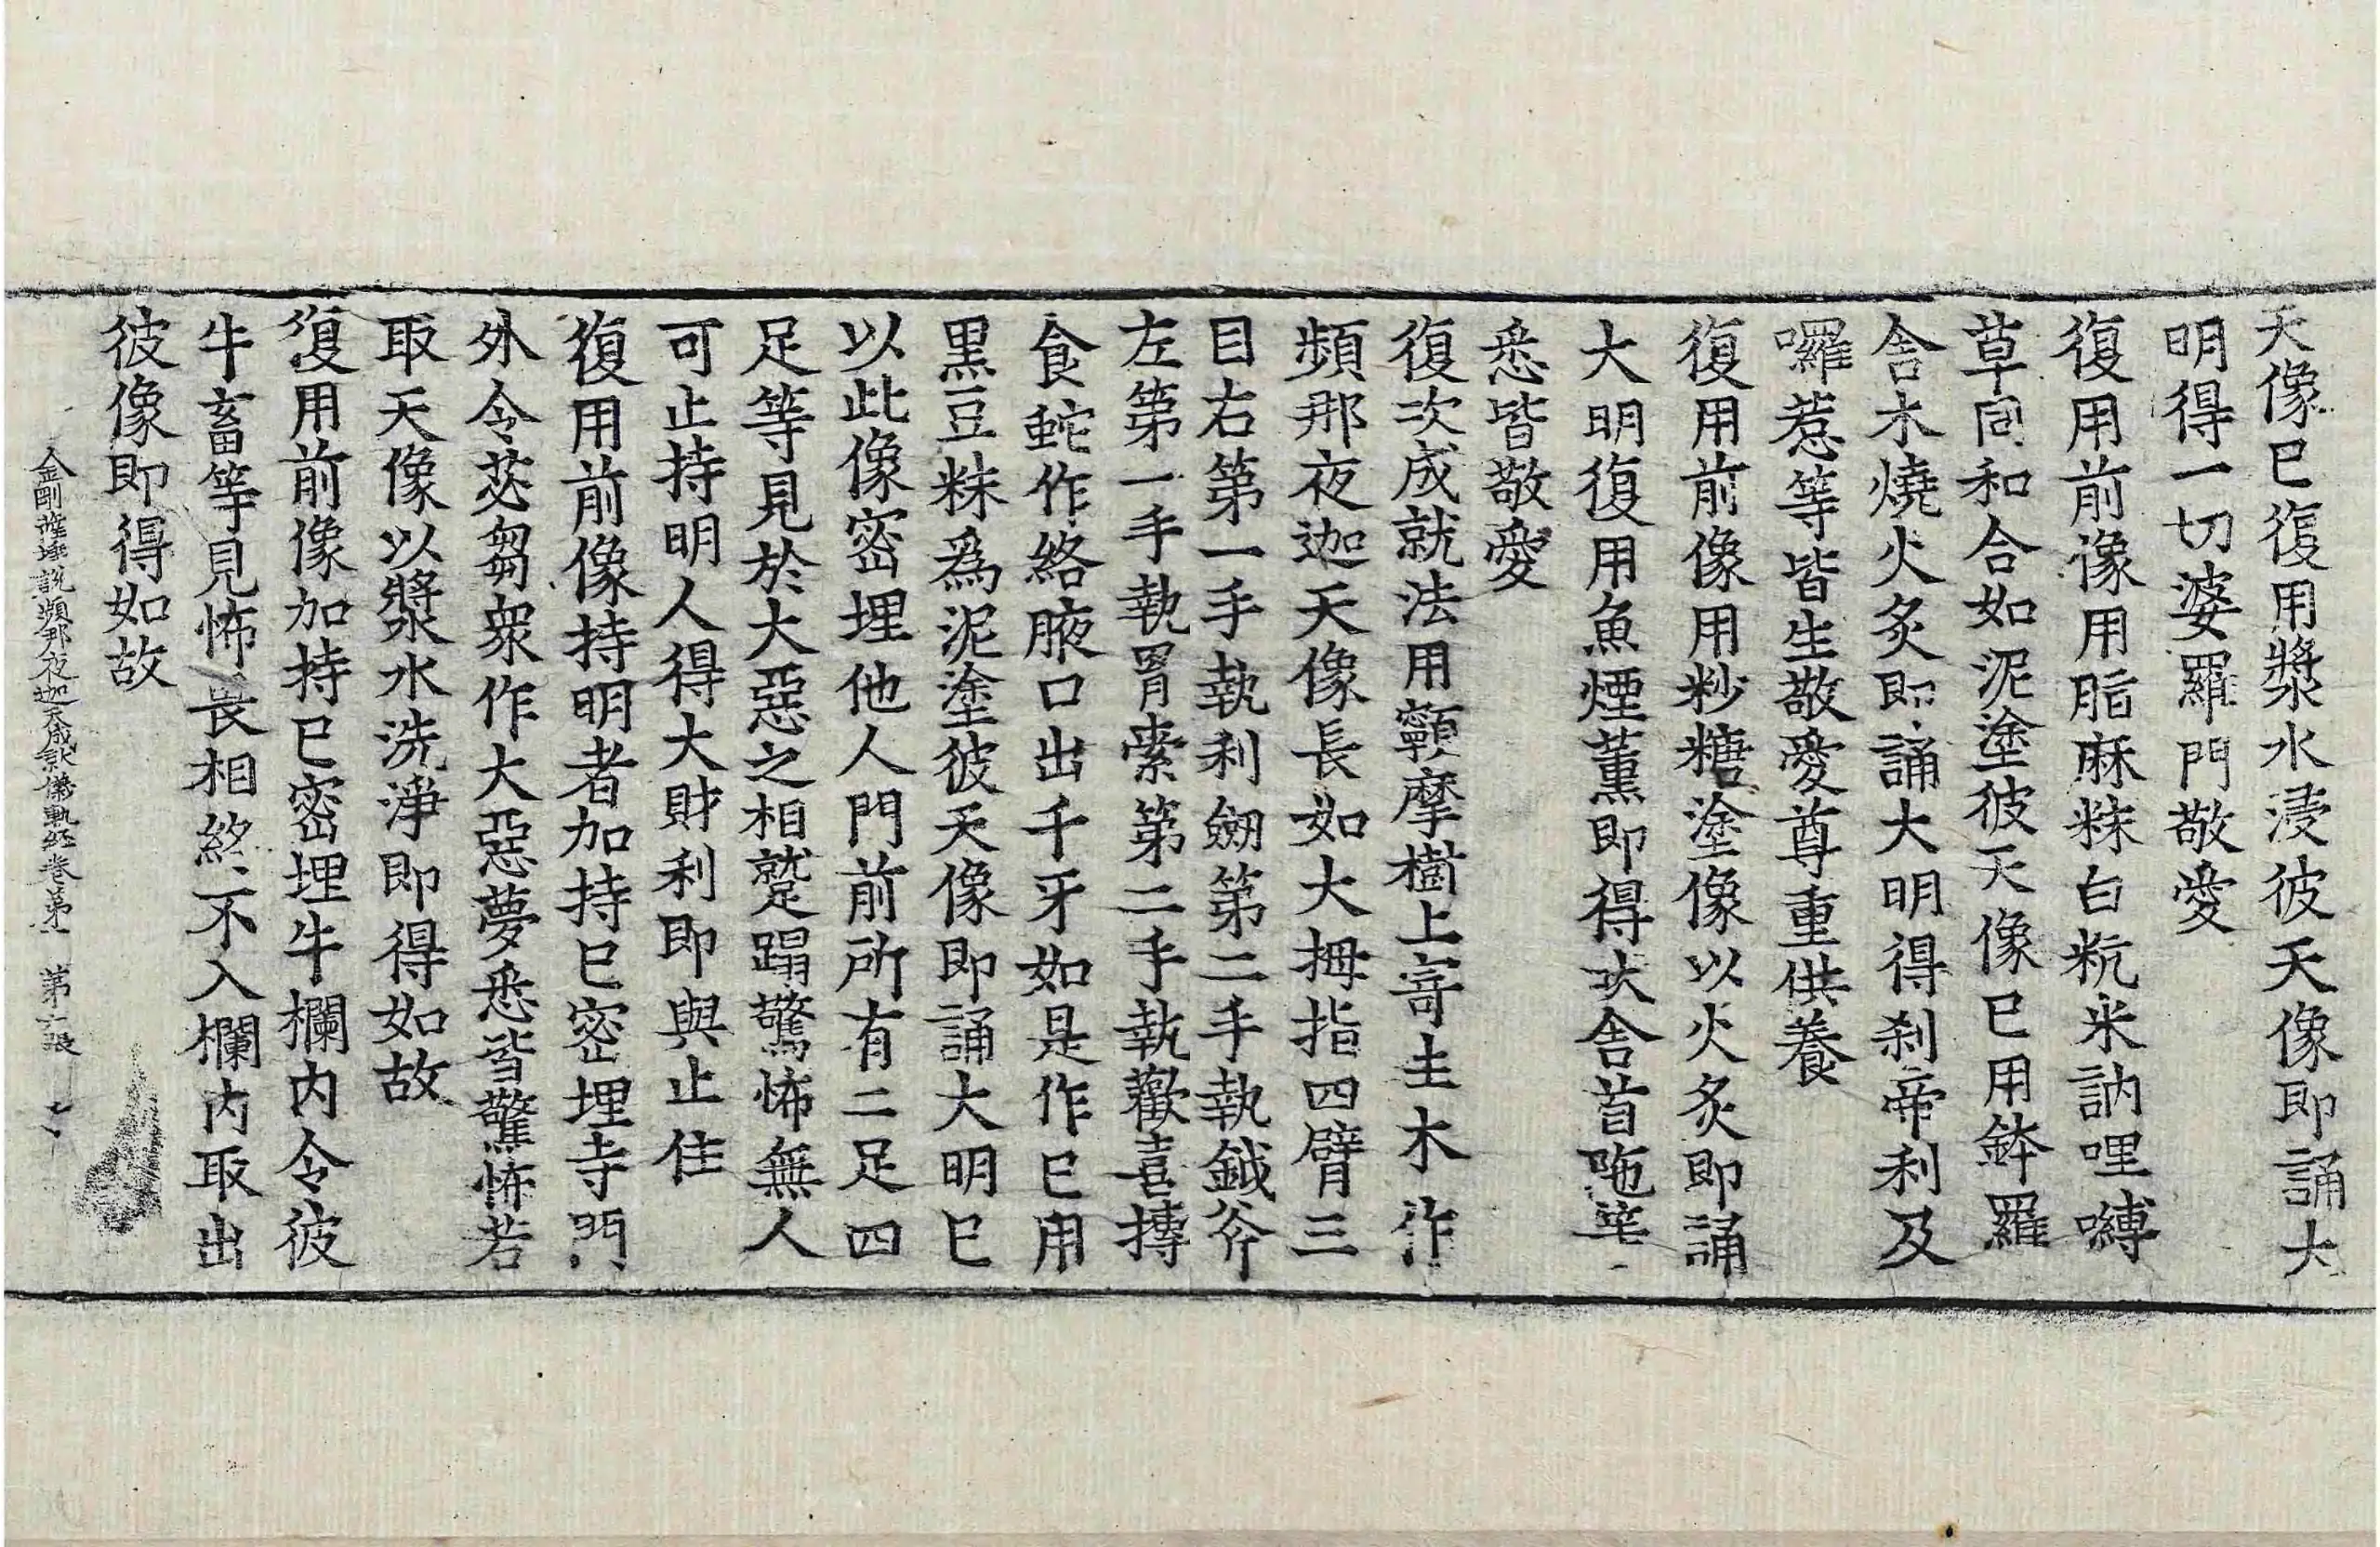 天像已復用漿水浸彼天像即誦大
明得一切婆羅門敬愛
復用前像用脂麻粖白粇米訥哩嚩
草同和合如泥塗彼天像已用鉢羅
舍木燒火炙即誦大明得剎帝利及
囉惹等皆生敬愛尊重供養
復用前像用粆糖塗像以火炙即誦
大明復用魚煙薰即得吠舍首陁等
悉皆敬愛
復次成就法用顰摩樹上寄生木作
頻那夜迦天像長如大拇指四臂三
目右第一手執利劒第二手執鉞斧
左第一手執罥索第二手執歡喜摶
食虵作絡腋口出千牙如是作已用
黑豆粖爲泥塗彼天像即誦大明已
以此像密埋他人門前所有二足四
足等見於大惡之相蹴蹋驚怖無人
可止持明人得大財利即與止住
復用前像持明者加持已密埋寺門
外令苾芻衆作大惡夢悉皆驚怖若
取天像以漿水洗淨即得如故
復用前像加持已密埋牛欄内令彼
牛畜等見怖畏相終不入欄内取出
彼像即得如故
金剛薩埵說頻那夜迦天成就儀軌經卷第一 第六張